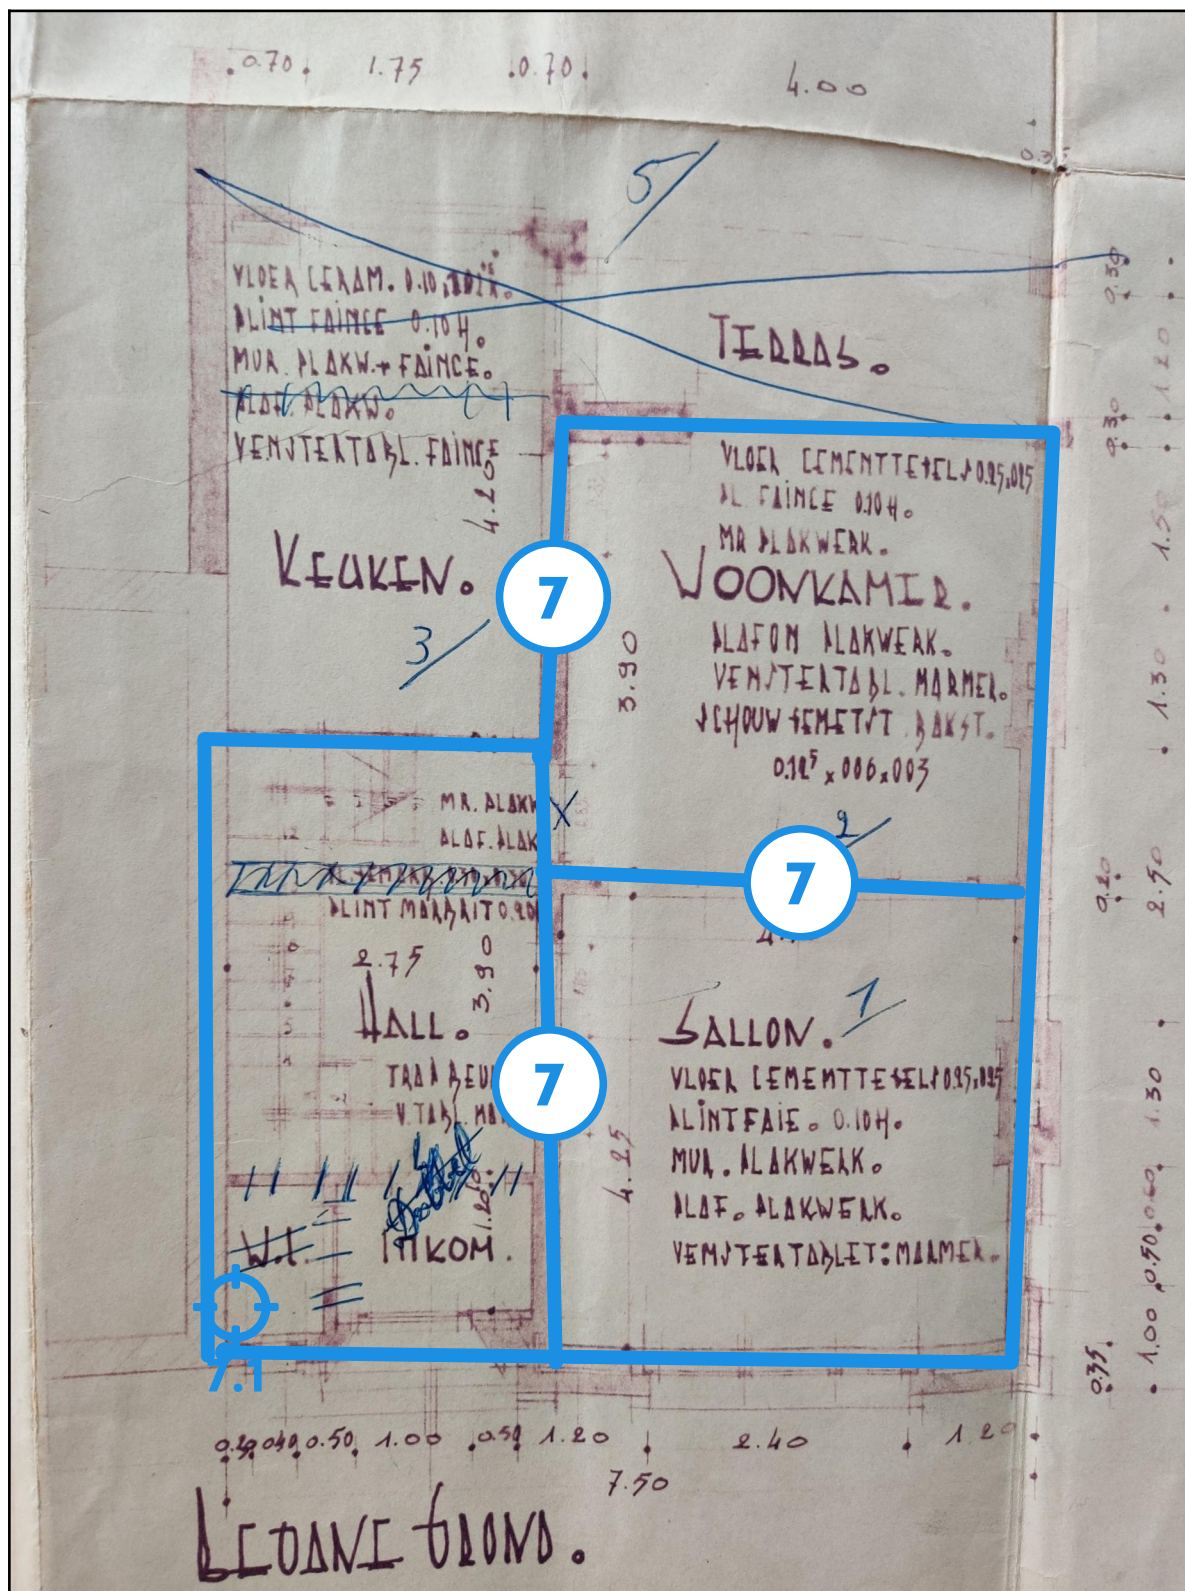 0.70. 1.75 .0.70. 4.00
0.35
5/
VLOER CERAM. 0.10
PLINT FAINCE 0.10 H.
MUR. PLAKW. + FAINCE.
PLAF. PLAKW.
VENSTERTABL. FAINCE
TERRAS.
4.20
KEUKEN.
3/
VLOER CEMENTTEGELS 0.25x025
PL. FAINCE 0.10 H.
MR PLAKWERK.
WOONKAMER.
PLAFON PLAKWERK.
VENSTERTABL. MARMER.
SCHOUW GEMETST. BAKST.
0.18⁵ x 006 x 003
3.90
2/
7
7
7
X
MR. PLAKW
PLAF. PLAK
PLINT MARBRIT 0.20
2.75
3.90
HALL.
TRAP BEU
V. TABL. MA
1.20
W.C.
INKOM.
7.1
SALLON. 1/
VLOER CEMENTTEGELS 0.25x025
PLINT FAIE. 0.10 H.
MUR. PLAKWERK.
PLAF. PLAKWERK.
VENSTERTABLET: MARMER.
4.25
0.30
1.20
0.30
1.50
1.30
0.20
2.50
1.30
0.60
0.50
1.00
0.35
0.20 0.40 0.50 1.00 0.50 1.20 2.40 1.20
7.50
BEGANE GROND.